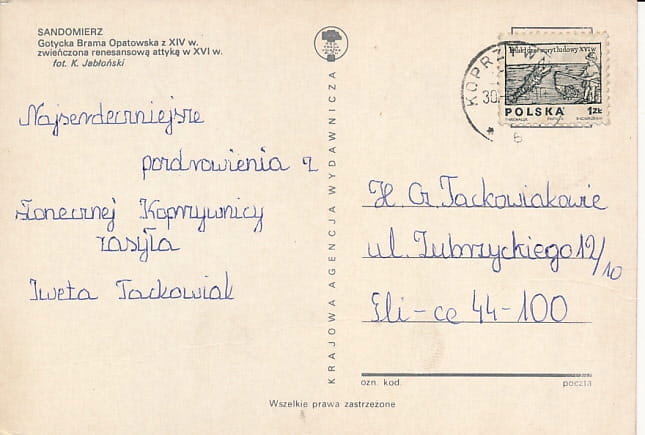 SANDOMIERZ
Gotycka Brama Opatowska z XIV w.
zwieńczona renesansową attyką w XVI w.
fot. K. Jabłoński
Najserdeczniejsze
pozdrowienia z
słonecznej Koprzywnicy
zasyła
Iweta Tackowiak
KRAJOWA AGENCJA WYDAWNICZA
KOPRZYW
30
6
POLSKA 1ZŁ
H. G. Tackowiakowie
ul. Zubrzyckiego 12/10
Gli-ce 44-100
ozn. kod. poczta
Wszelkie prawa zastrzeżone